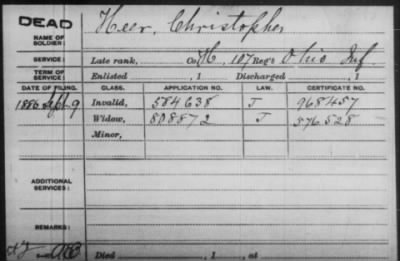 DEAD
NAME OF SOLDIER:
Heer, Christopher
SERVICE:
Late rank, Co. H, 107 Reg't Ohio Inf.
TERM OF SERVICE:
Enlisted , 1 Discharged , 1
DATE OF FILING. CLASS. APPLICATION NO. LAW. CERTIFICATE NO.
1886 Sept. 9 Invalid, 584638 J 968457
Widow, 808872 J 576528
Minor,
ADDITIONAL SERVICES:
REMARKS:
Died , 1 , at